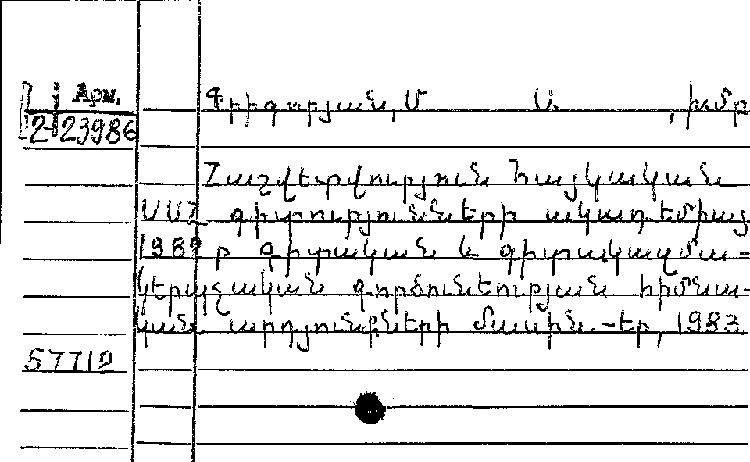 Арм.
2-23986
Գրիգորյան, Մ Ա , խմբ
Հաշվետվություն Հայկական
ՍՍՀ գիտությունների ակադեմիայի
գիտական և գիտակազմա-
կերպչական գործունեության հիմնա-
կան արդյունքների մասին.-Եր, 1983
57712